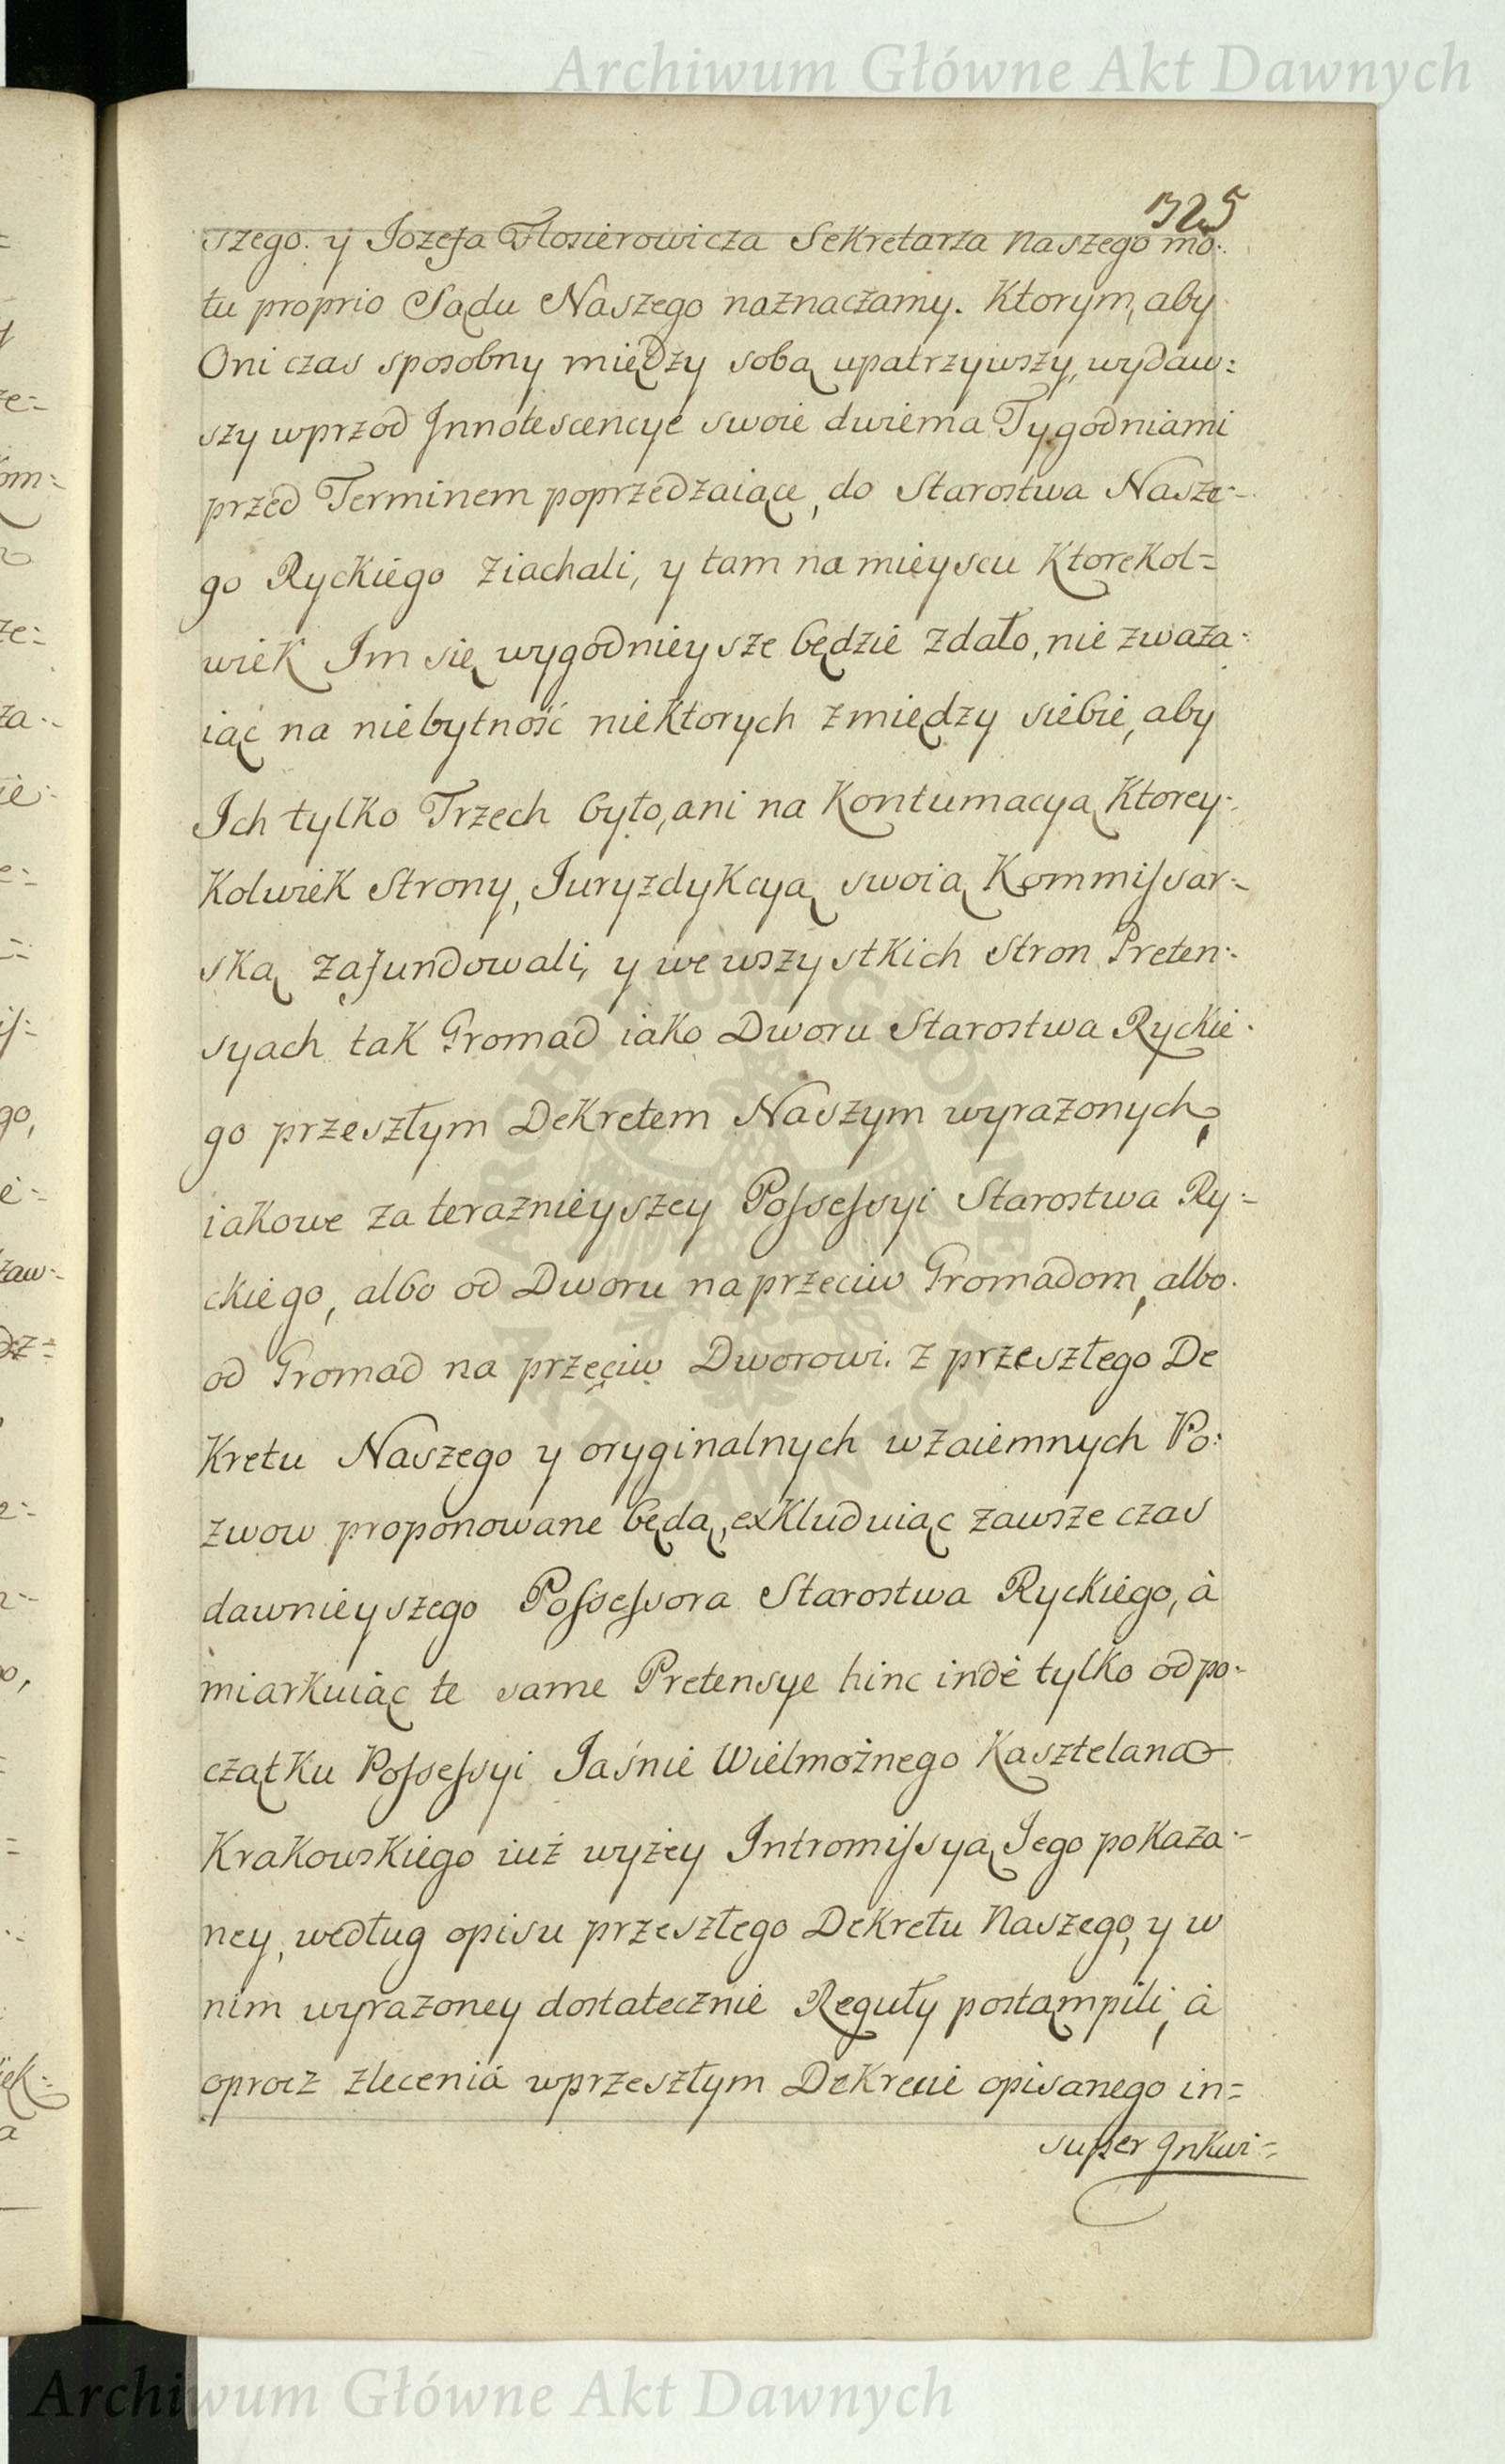 Archiwum Główne Akt Dawnych
325
szego. y Jozefa Flosierowicza Sekretarza Naszego mo:
tu proprio Sądu Naszego naznaczamy. Ktorym, aby
Oni czas sposobny między sobą upatrzywszy, wydaw:
szy wprzod Innotescencye swoie dwiema Tygodniami
przed Terminem poprzedzaiące, do Starostwa Nasze-
go Ryckiego ziachali, y tam na mieyscu Ktorekol=
wiek Im się wygodnieysze będzie zdało, nie zważa-
iąc na niebytność niektorych zmiędzy siebie, aby
Ich tylko Trzech było, ani na Kontumacyą Ktorey-
Kolwiek Strony, Juryzdykcyą swoią Kommissar-
ską zafundowali, y we wszystkich Stron Preten:
syach tak Gromad iako Dworu Starostwa Ryckie-
go przeszłym Dekretem Naszym wyrażonych,
iakowe za teraznieyszey Possessyi Starostwa Ry=
ckiego, albo od Dworu naprzeciw Gromadom, albo
od Gromad na przeciw Dworowi. z przeszłego De
Kretu Naszego y oryginalnych wzaiemnych Po:
zwow proponowane będą, exkluduiąc zawsze czas
dawnieyszego Possessora Starostwa Ryckiego, à
miarkuiąc te same Pretensye hinc indè tylko od po-
czątku Possessyi Jaśnie Wielmożnego Kasztelana
Krakowskiego iuż wyżey Intromissyą Jego pokaza-
ney, według opisu przeszłego Dekretu Naszego, y w
nim wyrażoney dostatecznie Reguły postąmpili, à
oprocz zlecenia wprzeszłym Dekrecie opisanego in=
super Inkwi=
Archiwum Główne Akt Dawnych